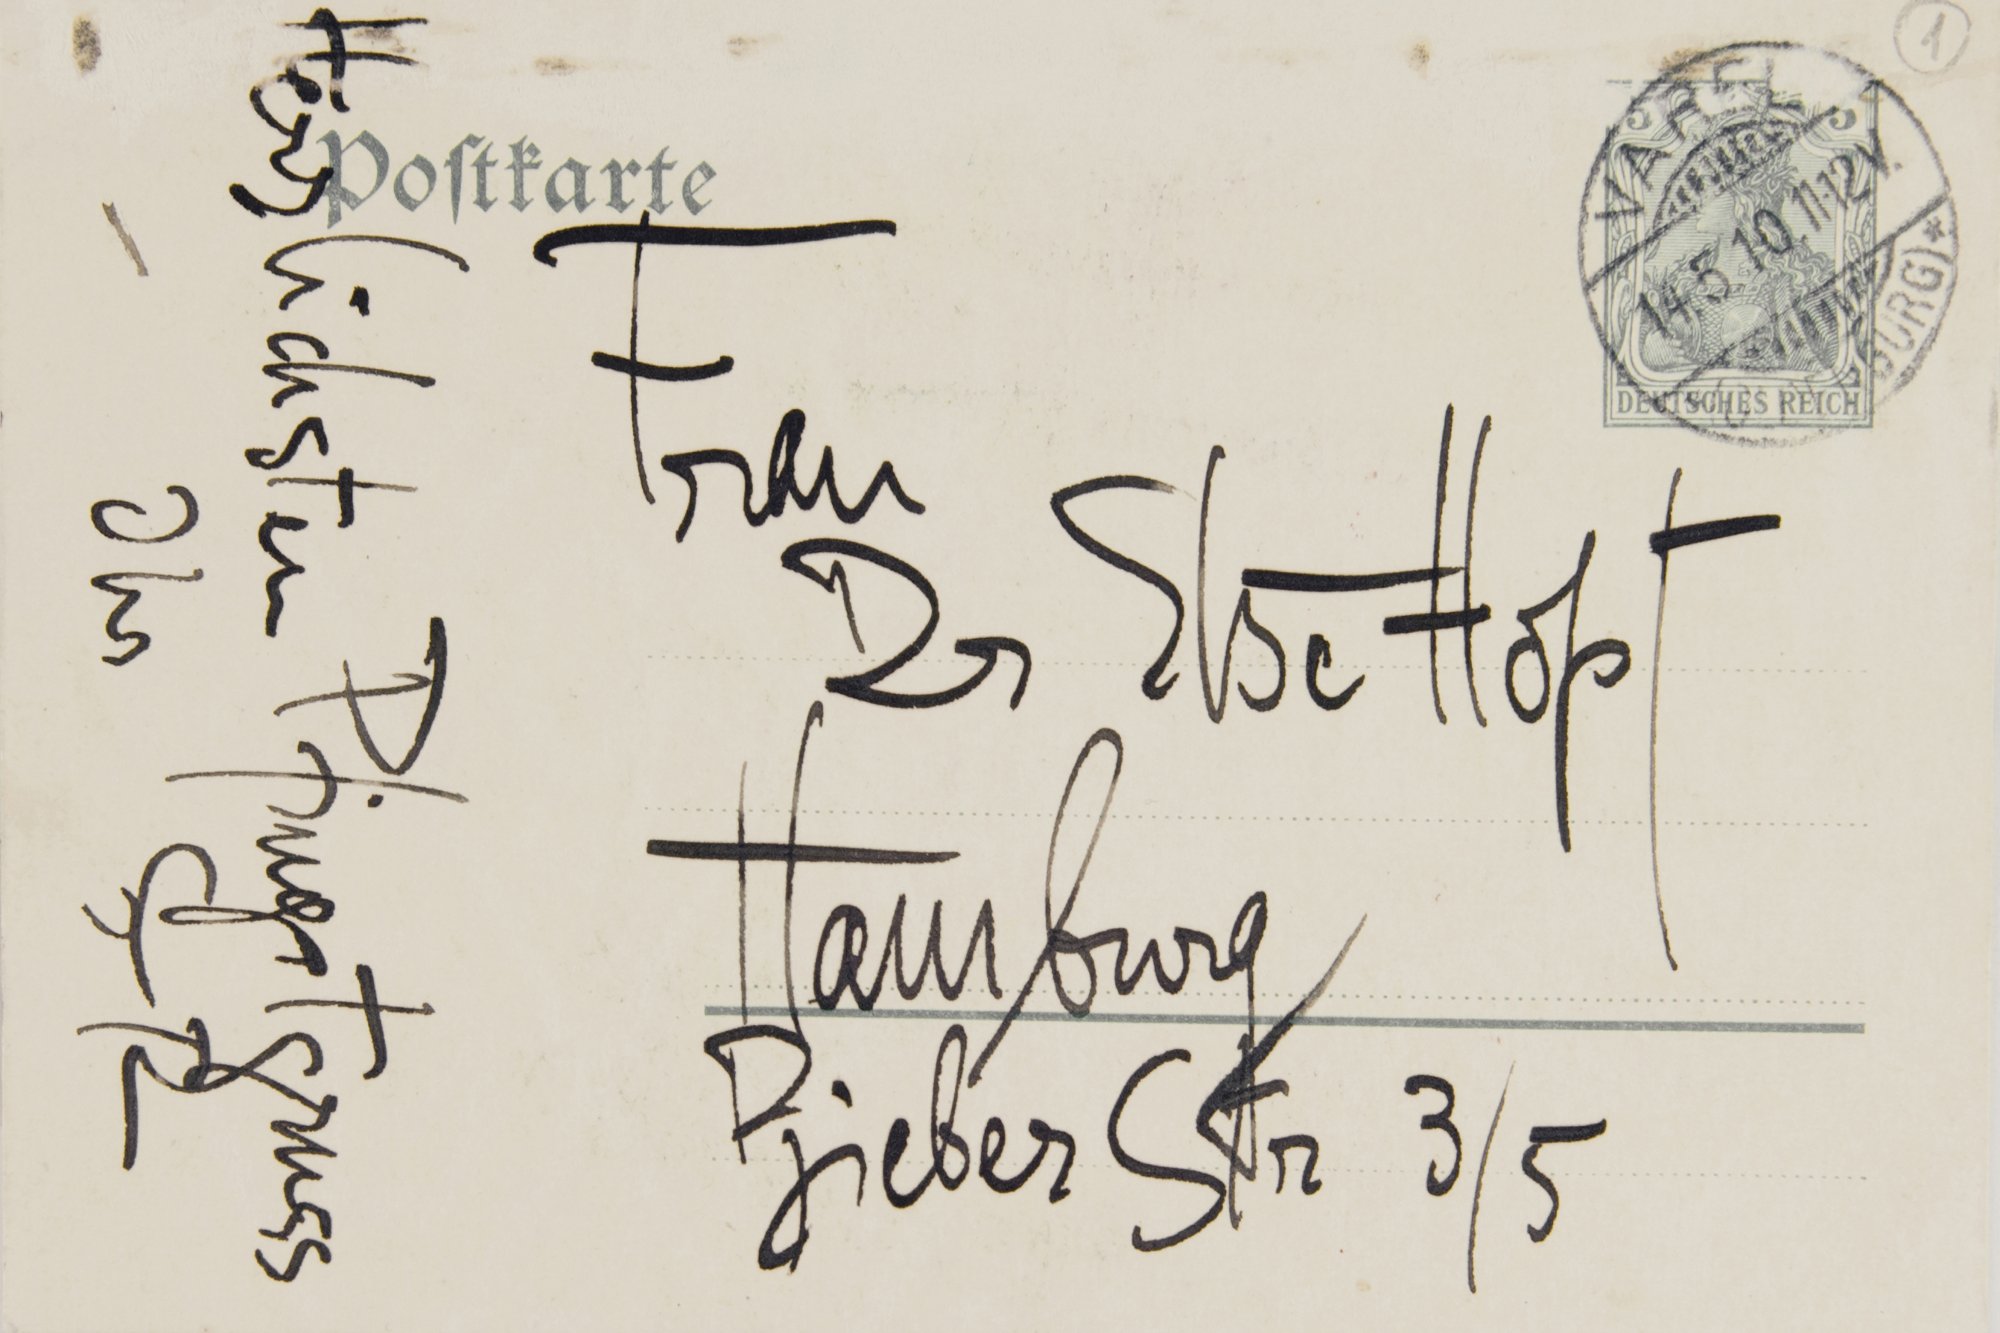 1
Postkarte
VAREL
14.5.10.11-12V.
(OLDENBURG)
5 5
DEUTSCHES REICH
Frau
Dr Else Hopf
Hamburg
Str 3/5
Herzlichsten Pfingstgruss
Ihr